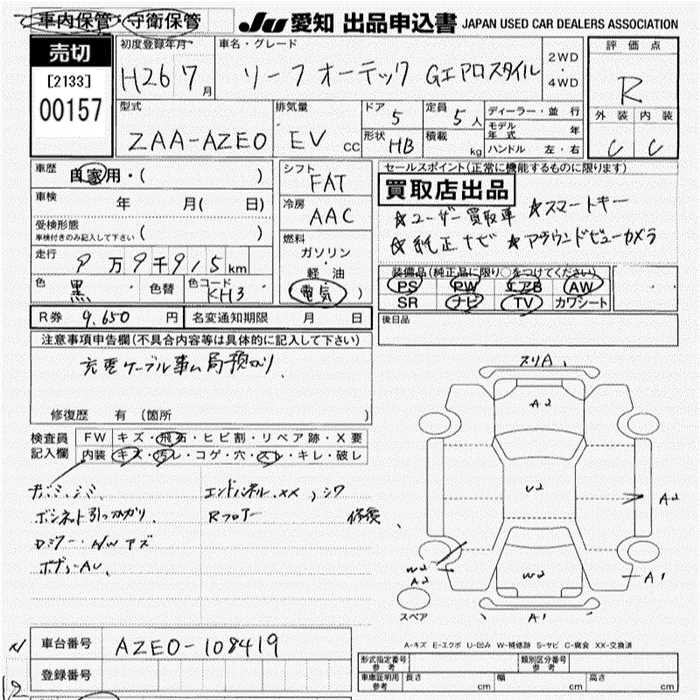 車内保管・守衛保管
JU 愛知 出品申込書 JAPAN USED CAR DEALERS ASSOCIATION
売切
[2133]
00157
初度登録年月
H26 7月
車名・グレード
リーフ オーテック Gエアロスタイル
2WD・4WD
評価点
R
型式
ZAA-AZE0
排気量
EV cc
ドア
5
定員
5人
形状
HB
積載
kg
ディーラー・並行
モデル年式 年
ハンドル 左・右
外装 内装
C C
車歴
自家用・( )
車検
年 月( 日)
受検形態
車検付きのみ記入して下さい ( )
走行
9万9千915km
色
黒
色替
色コード
KH3
シフト
FAT
冷房
AAC
燃料
ガソリン・軽油
(電気)
セールスポイント(正常に機能するものに限ります)
買取店出品
★ユーザー買取車 ★スマートキー
★純正ナビ ★アラウンドビューカメラ
装備品(純正品に限り○をつけてください)
PS PW エアB AW
SR ナビ TV カワシート
R券 9,650 円
名変通知期限 月 日
後日品
注意事項申告欄(不具合内容等は具体的に記入して下さい)
充電ケーブル事ム局預かり
修復歴 有 (箇所 )
検査員記入欄
FW キズ・飛石・ヒビ割・リペア跡・X要
内装 キズ・汚レ・コゲ・穴・スレ・キレ・破レ
エンドパネル XX、シワ
ボンネット引っかかり、
Rフロアー 修復、
スリA
A2
U2
A2
W2
A2
W2
A1
A1
スペア
A-キズ E-エクボ U-凹み W-補修跡 S-サビ C-腐食 XX-交換済
車台番号
AZE0-108419
登録番号
形式指定番号 参考
類別区分番号 参考
車庫証明用 参考 長さ cm 幅 cm 高さ cm